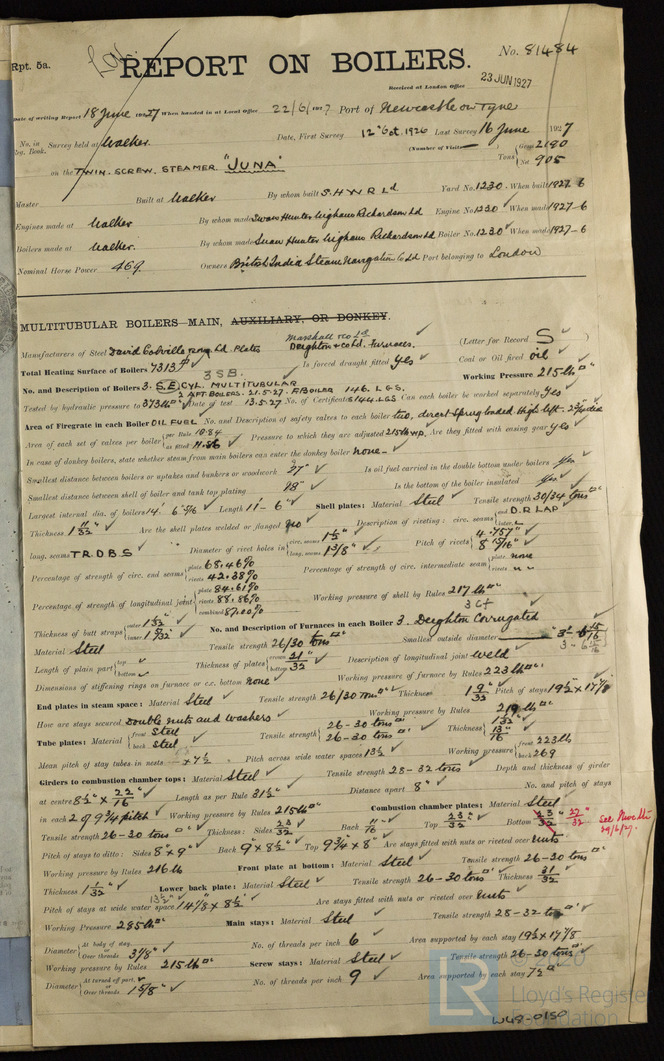 Rpt. 5a.
REPORT ON BOILERS.
No. 81484
Received at London Office 23 JUN 1927
Date of writing Report 18 June 1927 When handed in at Local Office 22/6/1927 Port of Newcastle on Tyne
No. in Reg. Book. Survey held at Walker. Date, First Survey 12 Oct. 1926 Last Survey 16 June 1927
(Number of Visits
on the TWIN. SCREW. STEAMER. "JUNA" Tons Gross 2190 Net 905
Master Built at Walker By whom built S.H.W.R Ld Yard No. 1230. When built 1927-6
Engines made at Walker By whom made Swan Hunter Wigham Richardson Ld Engine No. 1230 When made 1927-6
Boilers made at Walker. By whom made Swan Hunter Wigham Richardson Ld Boiler No. 1230 When made 1927-6
Nominal Horse Power 469 Owners British India Steam Navigation Co Ld Port belonging to London
MULTITUBULAR BOILERS—MAIN, AUXILIARY, OR DONKEY.
Manufacturers of Steel David Colville Plates Deighton & Co Ld. Furnaces. (Letter for Record S
Total Heating Surface of Boilers 7313 Is forced draught fitted yes Coal or Oil fired oil
3 S B.
No. and Description of Boilers 3. S.E. CYL. MULTITUBULAR Working Pressure 215 lb
2 AFT BOILERS. 21.5.27. F. BOILER 146. L.G.S.
Tested by hydraulic pressure to 373 lb Date of test 13.5.27 No. of Certificate 8144. LGS Can each boiler be worked separately Yes
Area of Firegrate in each Boiler OIL FUEL No. and Description of safety valves to each boiler two, direct Spring loaded High lift
Area of each set of valves per boiler per Rule 10.84 as fitted Pressure to which they are adjusted 215 lb W.P. Are they fitted with easing gear Yes
In case of donkey boilers, state whether steam from main boilers can enter the donkey boiler none.
Smallest distance between boilers or uptakes and bunkers or woodwork 27" Is oil fuel carried in the double bottom under boilers yes
Smallest distance between shell of boiler and tank top plating 48" Is the bottom of the boiler insulated yes
Largest internal dia. of boilers 14' 6 Length 11'-6" Shell plates: Material Steel Tensile strength 30/34 tons
Thickness 1 11/32" Are the shell plates welded or flanged no Description of riveting: circ. seams end D.R LAP inter.
long. seams T.R.D.B.S Diameter of rivet holes in circ. seams 1 1/2" long. seams 1 3/8" Pitch of rivets 4.757" 8 15/16"
Percentage of strength of circ. end seams plate 68.46% rivets 42.38% Percentage of strength of circ. intermediate seam plate none rivets
Percentage of strength of longitudinal joint plate 84.61% rivets 88.86% combined 87.00% Working pressure of shell by Rules 217 lb
3 Cf
Thickness of butt straps outer inner No. and Description of Furnaces in each Boiler 3. Deighton Corrugated
Material Steel Tensile strength 26/30 tons Smallest outside diameter 3'-6 15/16
Length of plain part top bottom Thickness of plates crown bottom 21/32" Description of longitudinal joint weld
Dimensions of stiffening rings on furnace or c.c. bottom none Working pressure of furnace by Rules 223 lb
End plates in steam space: Material Steel Tensile strength 26/30 tons Thickness 1 9/32 Pitch of stays 19 1/2 x 17 7/8
How are stays secured Double nuts and washers Working pressure by Rules 219 lb
Tube plates: Material front Steel back Steel Tensile strength 26-30 tons 26-30 tons Thickness 1 1/32 13/16
Mean pitch of stay tubes in nests x 7 1/2 Pitch across wide water spaces 13 1/2 Working pressure front 223 lb back 269
Girders to combustion chamber tops: Material Steel Tensile strength 28-32 tons Depth and thickness of girder
at centre 8 1/2" x 22/16 Length as per Rule 31 1/2 Distance apart 8" No. and pitch of stays
in each 2 @ 9 3/4 pitch Working pressure by Rules 215 lb Combustion chamber plates: Material Steel
Tensile strength 26-30 tons Thickness: Sides 23/32 Back 11/16 Top 23/32 Bottom 23/32 27/32
29/6/27.
Pitch of stays to ditto: Sides 8" x 9" Back 9" x 8 1/2" Top 9 3/4" x 8" Are stays fitted with nuts or riveted over nuts
Working pressure by Rules 216 lb Front plate at bottom: Material Steel Tensile strength 26-30 tons
Thickness 1 1/32 Lower back plate: Material Steel Tensile strength 26-30 tons Thickness 31/32
Pitch of stays at wide water space 14 7/8 x 8 1/2 Are stays fitted with nuts or riveted over nuts
Working Pressure 285 lb Main stays: Material Steel Tensile strength 28-32 ton
Diameter At body of stay, Over threads 3 1/8" No. of threads per inch 6 Area supported by each stay 19 1/2 x 17 7/8
Working pressure by Rules 215 lb Screw stays: Material Steel Tensile strength 26-30 tons
Diameter At turned off part, Over threads 1 5/8" No. of threads per inch 9 Area supported by each stay 72
© 2020
LR
Lloyd's Register
Foundation
W48-0150